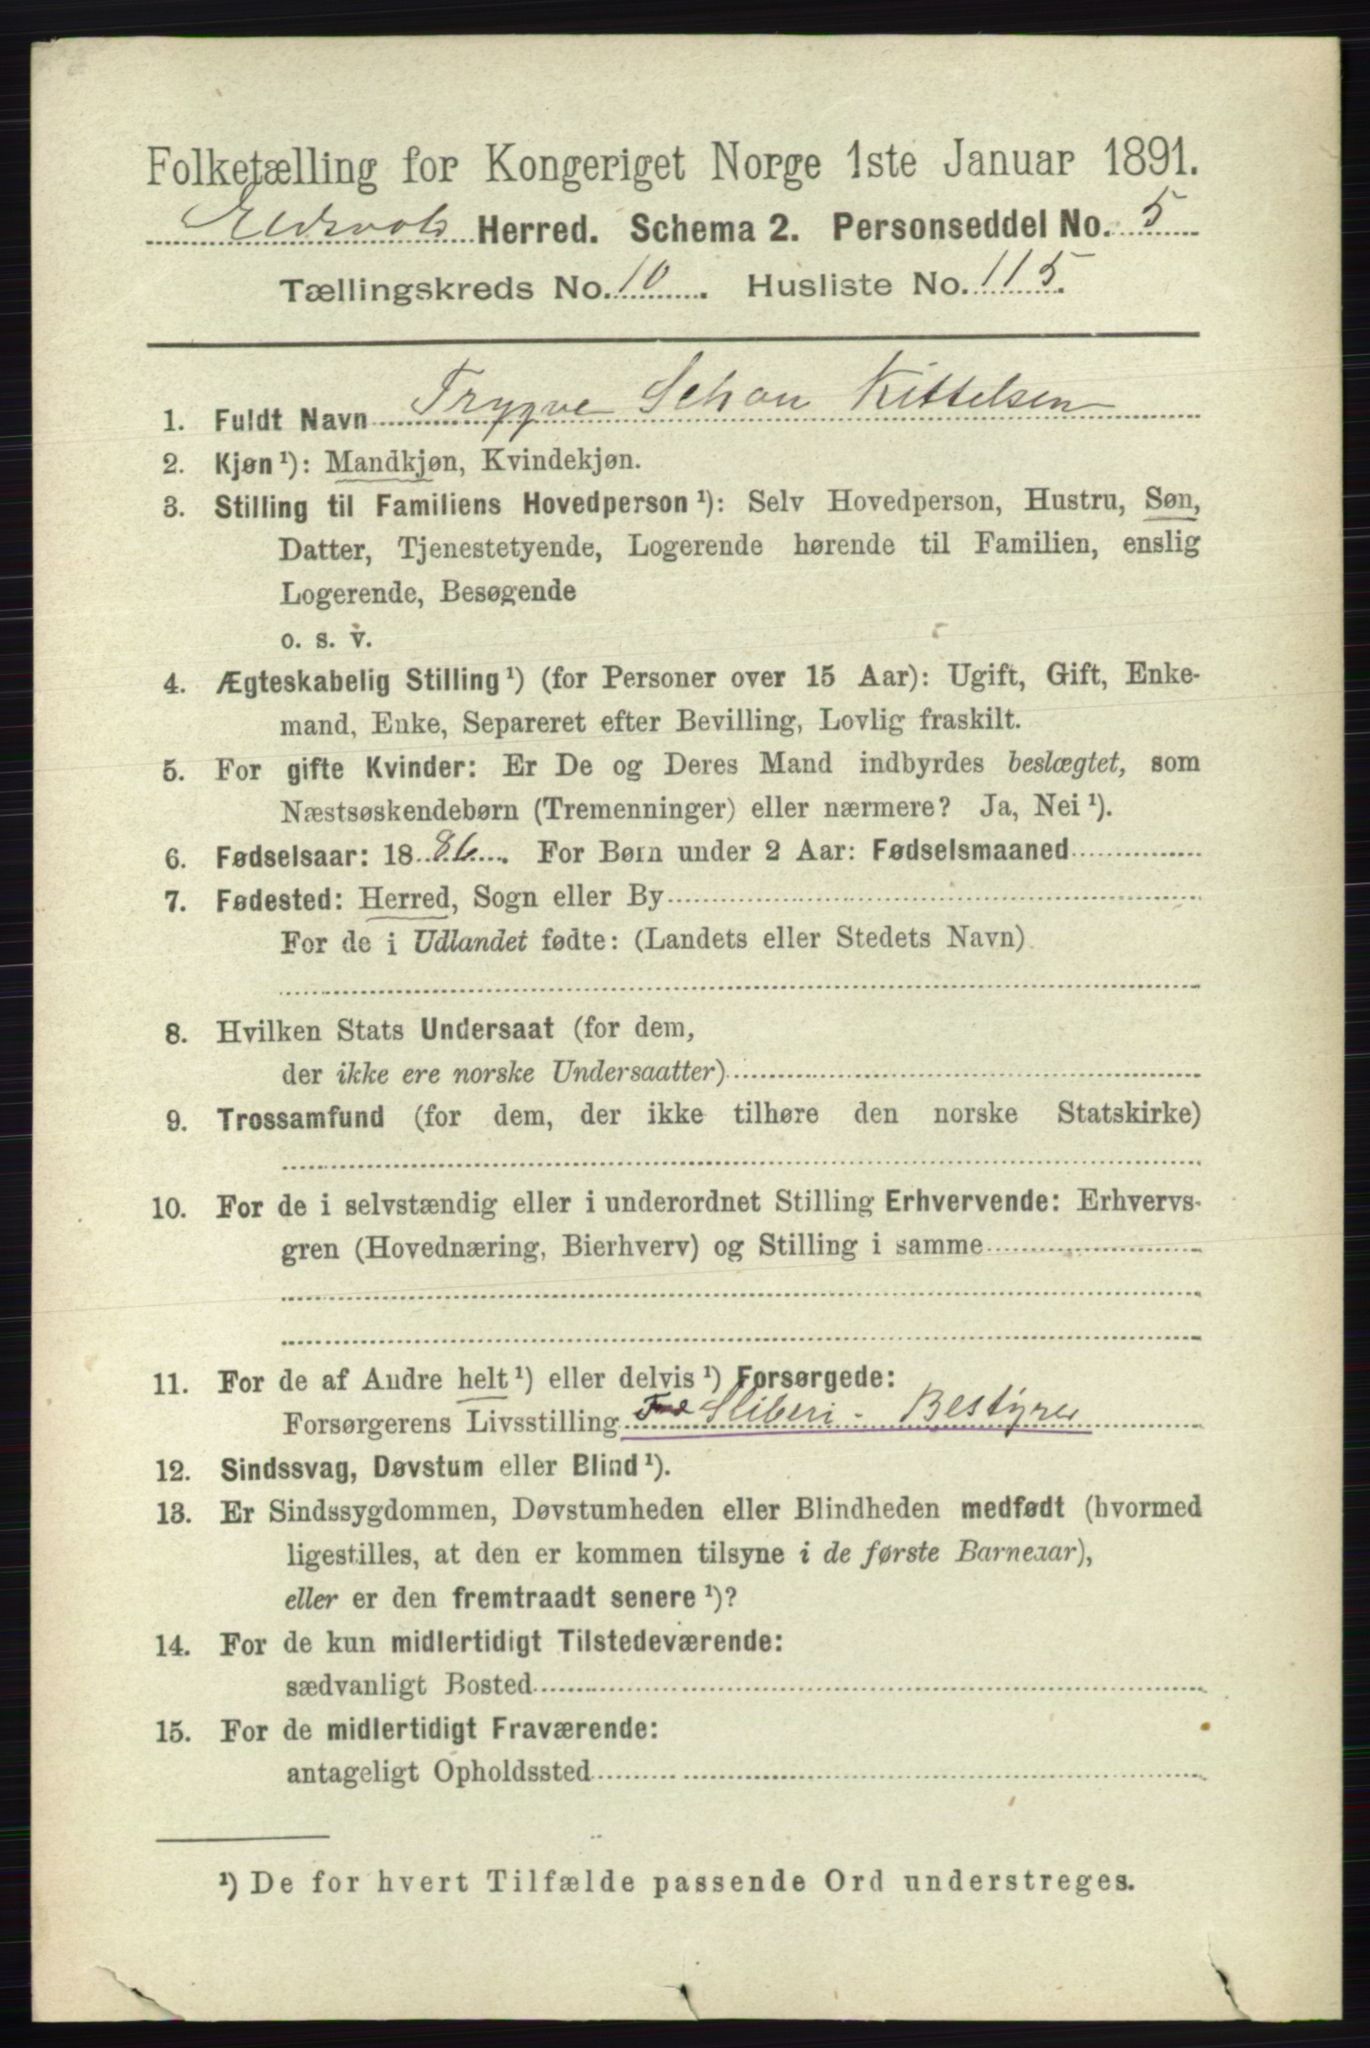 Folketælling for Kongeriget Norge 1ste Januar 1891.
Eidsvold Herred. Schema 2. Personseddel No. 5
Tællingskreds No. 10. Husliste No. 115.
1. Fuldt Navn Trygve Schou Kittelsen
2. Kjøn ¹): Mandkjøn, Kvindekjøn.
3. Stilling til Familiens Hovedperson ¹): Selv Hovedperson, Hustru, Søn,
Datter, Tjenestetyende, Logerende hørende til Familien, enslig
Logerende, Besøgende
o. s. v.
4. Ægteskabelig Stilling ¹) (for Personer over 15 Aar): Ugift, Gift, Enke-
mand, Enke, Separeret efter Bevilling, Lovlig fraskilt.
5. For gifte Kvinder: Er De og Deres Mand indbyrdes beslægtet, som
Næstsøskendebørn (Tremenninger) eller nærmere? Ja, Nei ¹).
6. Fødselsaar: 1886. For Børn under 2 Aar: Fødselsmaaned
7. Fødested: Herred, Sogn eller By
For de i Udlandet fødte: (Landets eller Stedets Navn)
8. Hvilken Stats Undersaat (for dem,
der ikke ere norske Undersaatter)
9. Trossamfund (for dem, der ikke tilhøre den norske Statskirke)
10. For de i selvstændig eller i underordnet Stilling Erhvervende: Erhvervs-
gren (Hovednæring, Bierhverv) og Stilling i samme
11. For de af Andre helt ¹) eller delvis ¹) Forsørgede:
Forsørgerens Livsstilling Sliberi-Bestyrer
12. Sindssvag, Døvstum eller Blind ¹).
13. Er Sindssygdommen, Døvstumheden eller Blindheden medfødt (hvormed
ligestilles, at den er kommen tilsyne i de første Barneaar),
eller er den fremtraadt senere ¹)?
14. For de kun midlertidigt Tilstedeværende:
sædvanligt Bosted
15. For de midlertidigt Fraværende:
antageligt Opholdssted
¹) De for hvert Tilfælde passende Ord understreges.